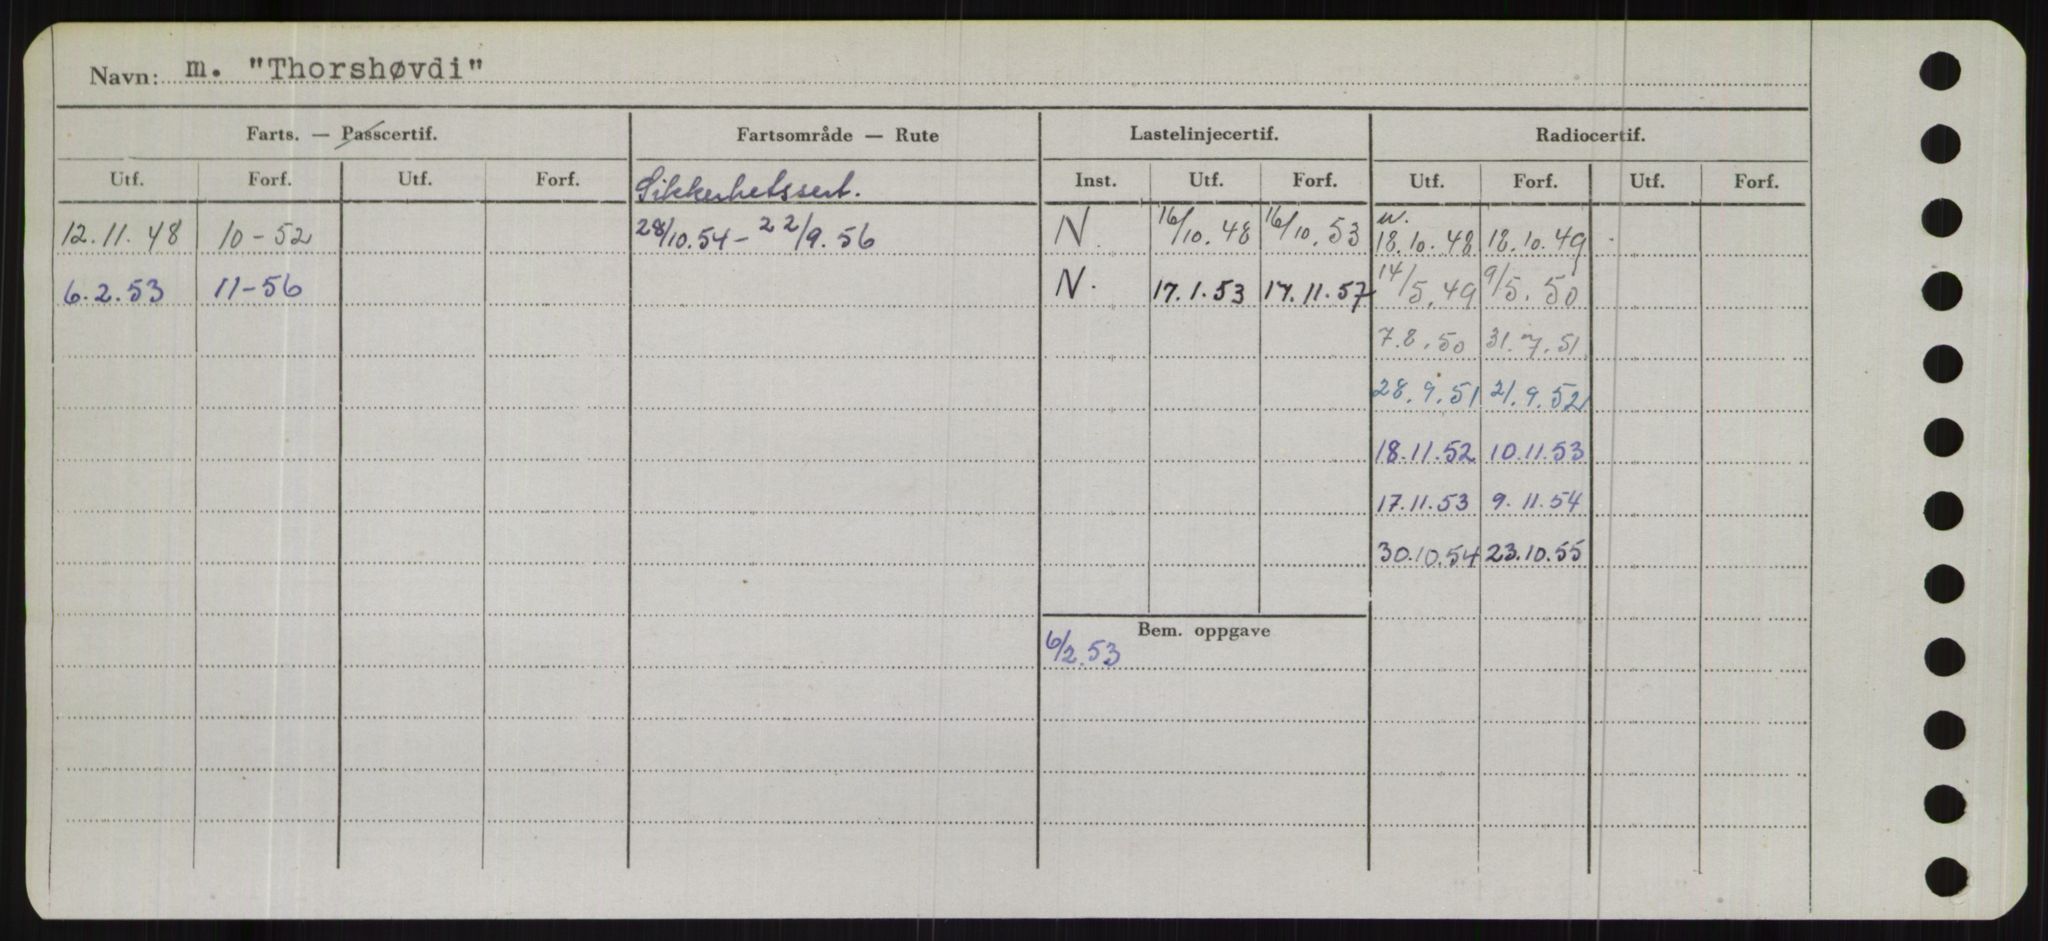 Navn: m. "Thorshøvdi"
Farts. — Passcertif. Fartsområde — Rute Lastelinjecertif. Radiocertif.
Utf. Forf. Utf. Forf. Sikkerhetssert. Inst. Utf. Forf. Utf. Forf. Utf. Forf.
12.11.48 10-52 28/10.54 - 22/9.56 N. 16/10.48 16/10.53 18.10.48 18.10.49
6.2.53 11-56 N. 17.1.53 17.11.57 14/5.49 9/5.50
7.8.50 31.7.51
28.9.51 21.9.52
18.11.52 10.11.53
17.11.53 9.11.54
30.10.54 23.10.55
Bem. oppgave
6/2.53